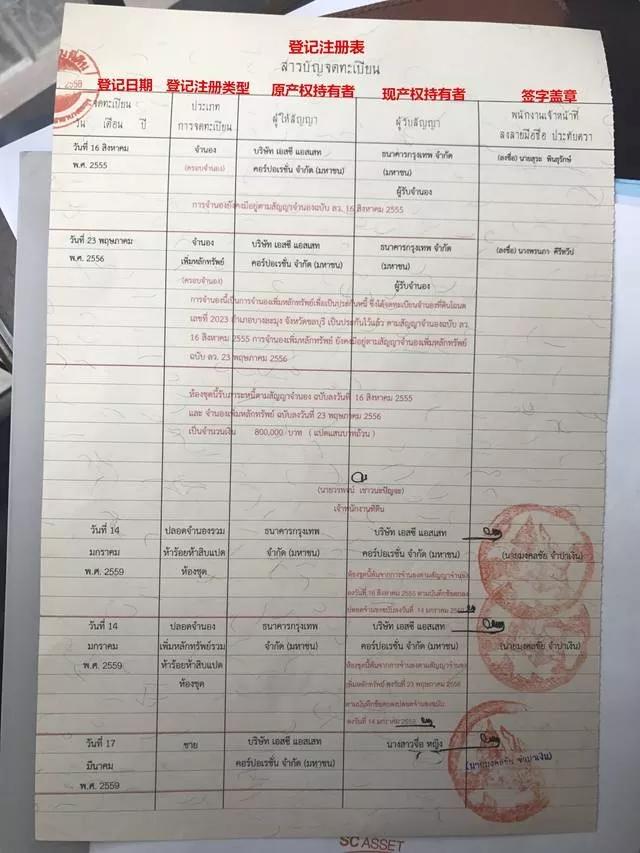 登记注册表
สารบัญจดทะเบียน
2559 登记日期 登记注册类型 原产权持有者 现产权持有者 签字盖章
จดทะเบียน
วัน เดือน ปี
ประเภท
การจดทะเบียน
ผู้ให้สัญญา
ผู้รับสัญญา
พนักงานเจ้าหน้าที่
ลงลายมือชื่อ ประทับตรา
วันที่ 16 สิงหาคม
พ.ศ. 2555
จำนอง
(ครอบจำนอง)
บริษัท เอสซี แอสเสท
คอร์ปอเรชั่น จำกัด (มหาชน)
ธนาคารกรุงเทพ จำกัด
(มหาชน)
ผู้รับจำนอง
(ลงชื่อ) นายสุระ พันธุรักษ์
การจำนองยังคงมีอยู่ตามสัญญาจำนองฉบับ ลว. 16 สิงหาคม 2555
วันที่ 23 พฤษภาคม
พ.ศ. 2556
จำนอง
เพิ่มหลักทรัพย์
(ครอบจำนอง)
บริษัท เอสซี แอสเสท
คอร์ปอเรชั่น จำกัด (มหาชน)
ธนาคารกรุงเทพ จำกัด
(มหาชน)
ผู้รับจำนอง
(ลงชื่อ) นางพรนภา คีรีทวีป
การจำนองนี้เป็นการจำนองเพิ่มหลักทรัพย์เพื่อเป็นประกันหนี้ ซึ่งได้จดทะเบียนจำนองที่ดินโฉนด
เลขที่ 2023 อำเภอบางละมุง จังหวัดชลบุรี เป็นประกันไว้แล้ว ตามสัญญาจำนองฉบับ ลว.
16 สิงหาคม 2555 การจำนองเพิ่มหลักทรัพย์ ยังคงมีอยู่ตามสัญญาจำนองเพิ่มหลักทรัพย์
ฉบับ ลว. 23 พฤษภาคม 2556
ห้องชุดนี้รับภาระหนี้ตามสัญญาจำนอง ฉบับลงวันที่ 16 สิงหาคม 2555
และ จำนองเพิ่มหลักทรัพย์ ฉบับลงวันที่ 23 พฤษภาคม 2556
เป็นจำนวนเงิน 800,000 บาท ( แปดแสนบาทถ้วน )
(นายวรพจน์ เชาวนะปัญจะ)
เจ้าพนักงานที่ดิน
วันที่ 14
มกราคม
พ.ศ. 2559
ปลอดจำนองรวม
ห้าร้อยห้าสิบแปด
ห้องชุด
ธนาคารกรุงเทพ
จำกัด (มหาชน)
บริษัท เอสซี แอสเสท
คอร์ปอเรชั่น จำกัด (มหาชน)
ห้องชุดนี้พ้นจากการจำนองตามสัญญาจำนอง
ลงวันที่ 16 สิงหาคม 2555 ตามบันทึกข้อตกลง
ปลอดจำนองฉบับลงวันที่ 14 มกราคม 2559
(นายมงคลชัย จำปาเงิน)
วันที่ 14
มกราคม
พ.ศ. 2559
ปลอดจำนอง
เพิ่มหลักทรัพย์รวม
ห้าร้อยห้าสิบแปด
ห้องชุด
ธนาคารกรุงเทพ
จำกัด (มหาชน)
บริษัท เอสซี แอสเสท
คอร์ปอเรชั่น จำกัด (มหาชน)
ห้องชุดนี้พ้นจากการจำนองตามสัญญาจำนอง
เพิ่มหลักทรัพย์ ลงวันที่ 23 พฤษภาคม 2556
ตามบันทึกข้อตกลงปลอดจำนองฉบับ
ลงวันที่ 14 มกราคม 2559
(นายมงคลชัย จำปาเงิน)
วันที่ 17
มีนาคม
พ.ศ. 2559
ขาย
บริษัท เอสซี แอสเสท
คอร์ปอเรชั่น จำกัด (มหาชน)
นางสาวจื่อ หญิง
(นายมงคลชัย จำปาเงิน)
SC ASSET